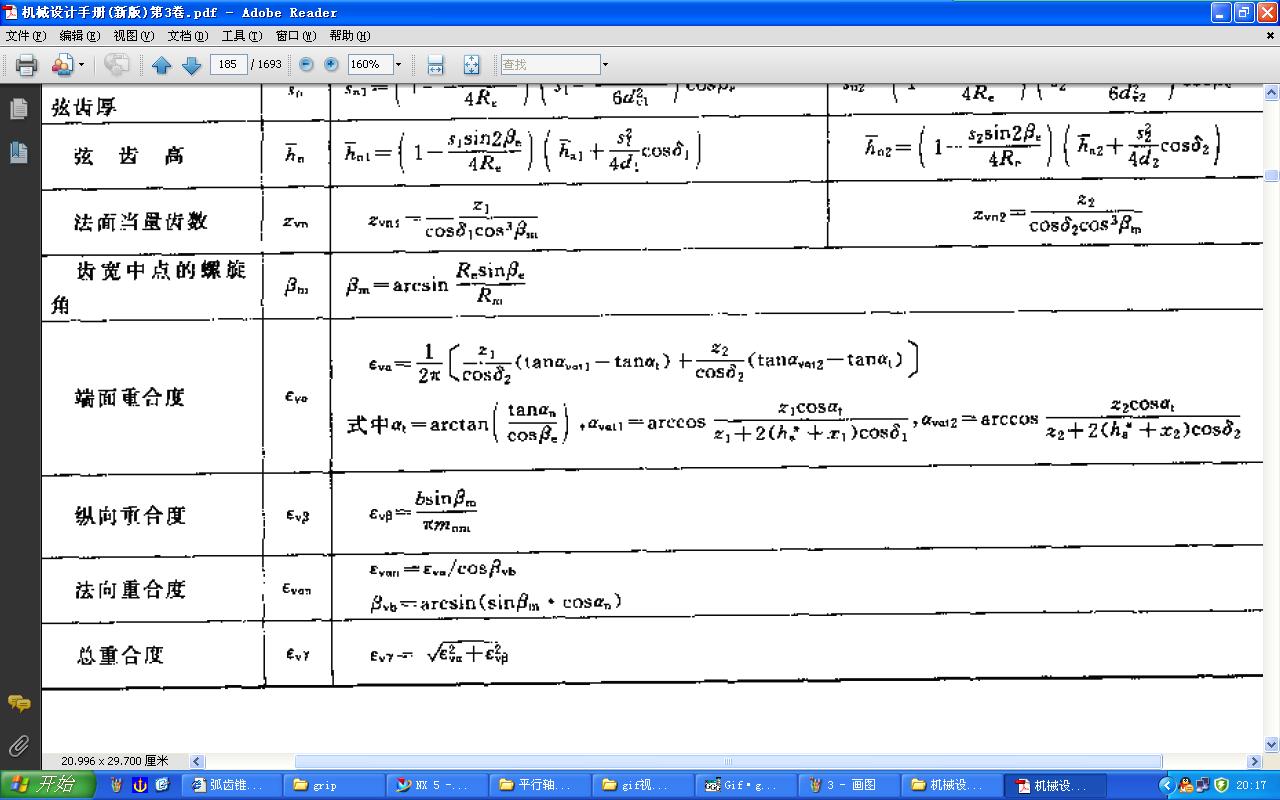 机械设计手册(新版)第3卷.pdf - Adobe Reader
文件(F) 编辑(E) 视图(V) 文档(D) 工具(T) 窗口(W) 帮助(H)
185 / 1693 160% 查找
弦齿厚
弦齿高 h̄n h̄n1=(1-s1sin2βe/4Re)(h̄a1+s1²/4d1cosδ1) h̄n2=(1-s2sin2βe/4Re)(h̄a2+s2²/4d2cosδ2)
法面当量齿数 zvn zvn1=z1/cosδ1cos³βm zvn2=z2/cosδ2cos³βm
齿宽中点的螺旋角 βm βm=arcsin Resinβe/Rm
端面重合度 εvα εvα=1/2π[z1/cosδ2(tanαvat1-tanαt)+z2/cosδ2(tanαvat2-tanαt)]
式中αt=arctan(tanαn/cosβe),αvat1=arccos z1cosαt/z1+2(ha*+x1)cosδ1,αvat2=arccos z2cosαt/z2+2(ha*+x2)cosδ2
纵向重合度 εvβ εvβ=bsinβm/πmnm
法向重合度 εvαn εvαn=εvα/cosβvb
βvb=arcsin(sinβm·cosαn)
总重合度 εvγ εvγ=√εvα²+εvβ²
20.996 x 29.700 厘米
开始 弧齿锥... grip NX 5 -... 平行轴... gif视... Gif·g... 3 - 画图 机械设... 机械设... 20:17